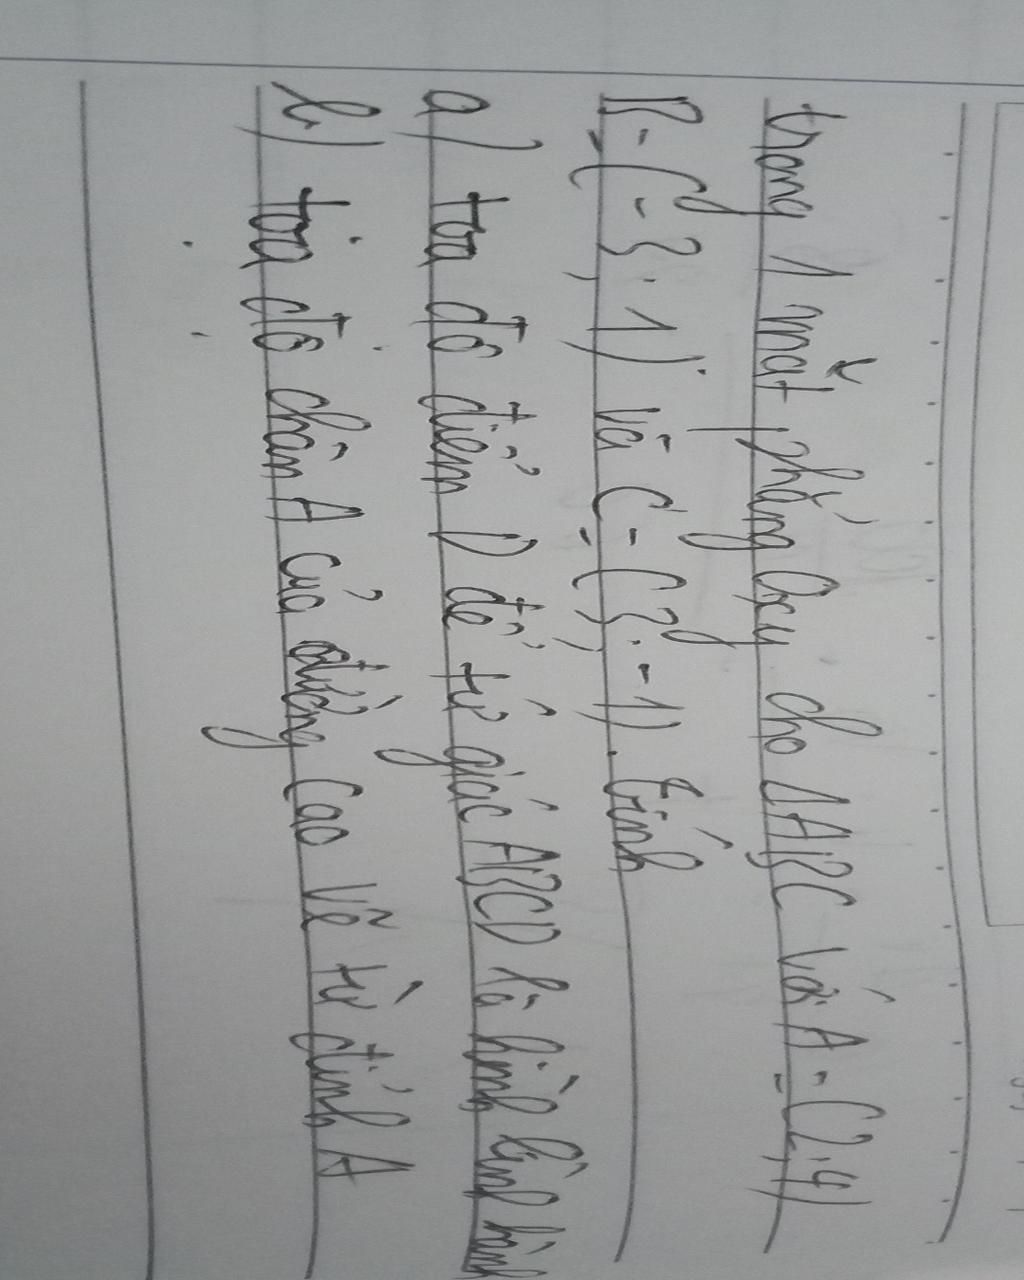 trong 1 mặt phẳng Oxy cho ΔABC với A = (2; 4)
B = (-3; 1) và C = (3; -1). tính
a) toạ độ điểm D để tứ giác ABCD là hình bình hành
b) toạ độ chân A của đường cao vẽ từ đỉnh A